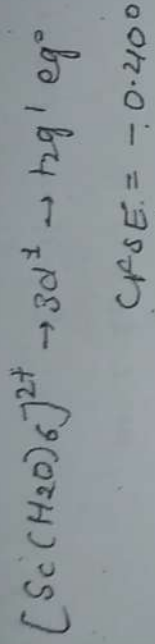 [Sc(H2O)6]2+ → 3d1 → t2g1 eg0
CFSE = -0.400